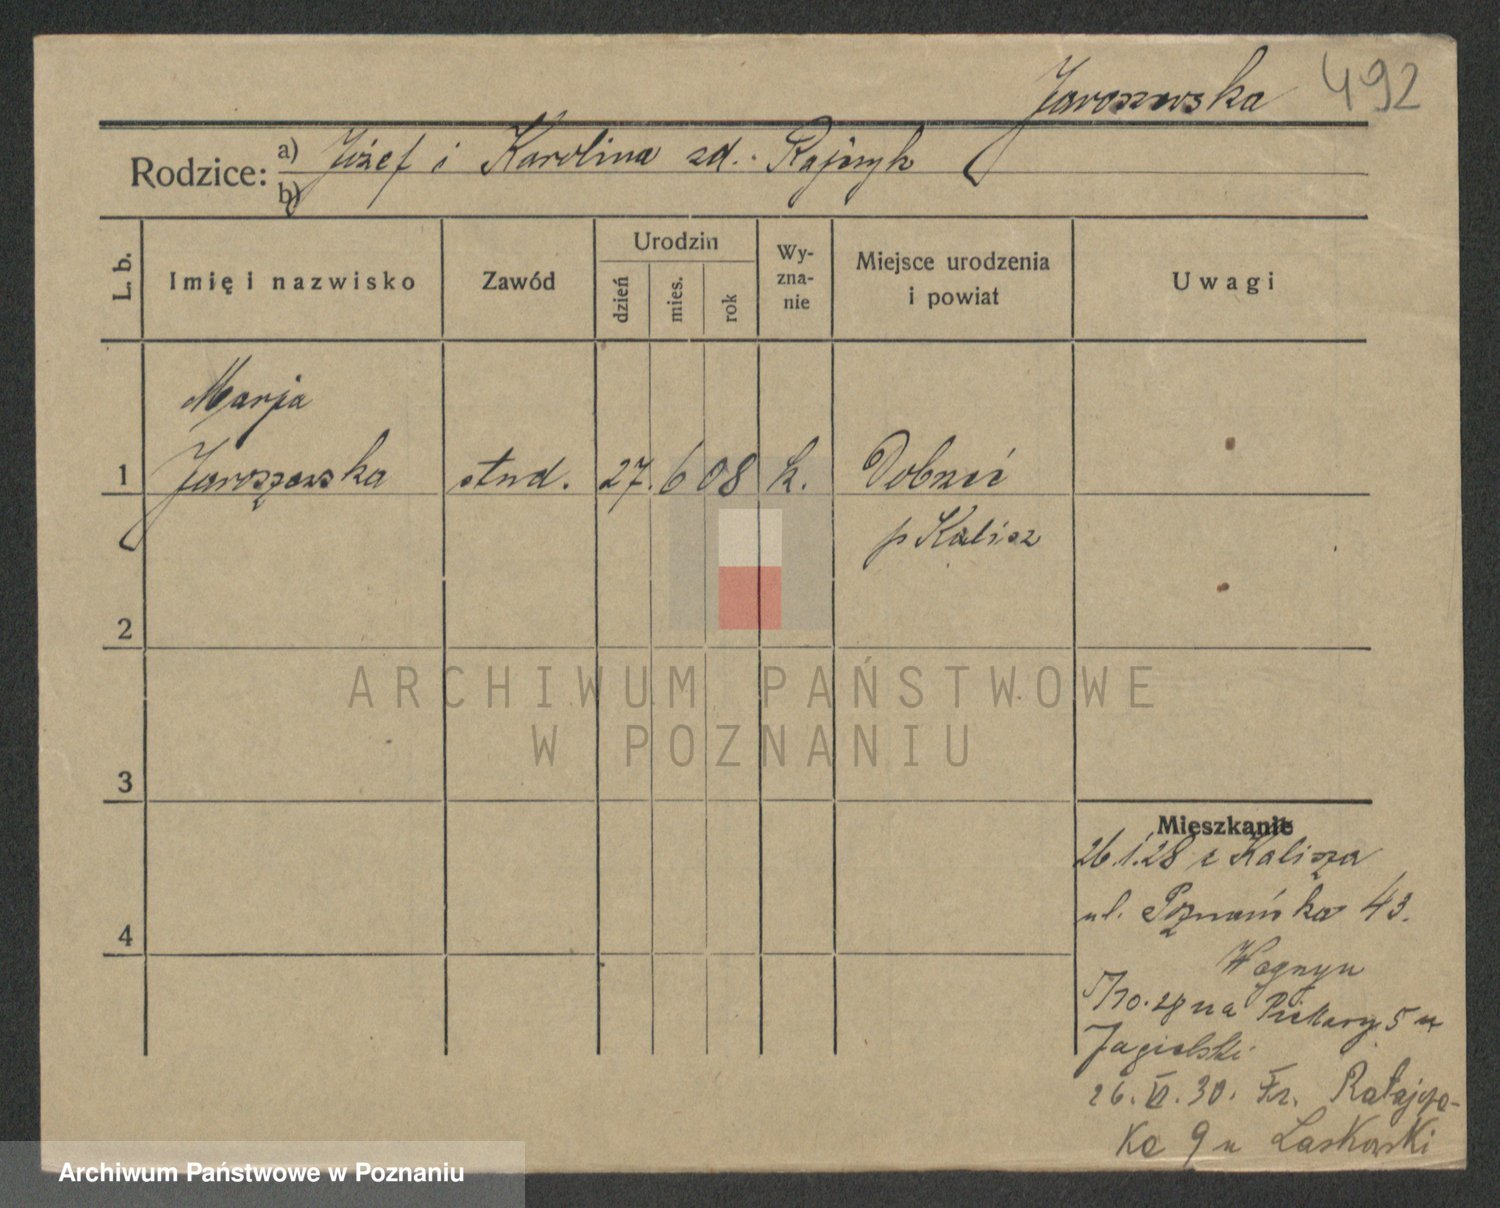 Jaroszewska 492
Rodzice: a) Józef i Karolina zd. Rajczyk
b)
L. b. Imię i nazwisko Zawód Urodzin dzień mies. rok Wy-zna-nie Miejsce urodzenia i powiat Uwagi
Marja
1 Jaroszewska stud. 27. 6 08 k. Dobrzeć
p Kalisz
2
ARCHIWUM PAŃSTWOWE
W POZNANIU
3
Mieszkanie
26.1.28 z Kalisza
ul. Poznańska 43.
4
Wagnyu
na Piekary 5 u
Jagielski
26. VI. 30. Fr. Ratajcza-
ka 9 u Laskowski
Archiwum Państwowe w Poznaniu